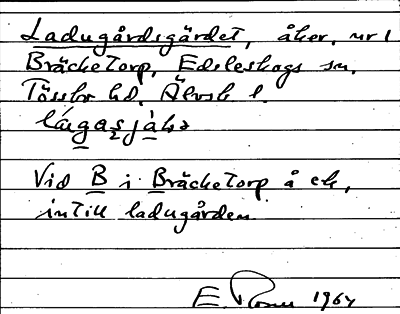 Ladugårdsgärdet, åker, nr 1
Bräcketorp, Edsleskogs sn,
Tössbo hd. Älvsb l.
Vid B i Bräcketorp å ek,
intill ladugården
E. 1964